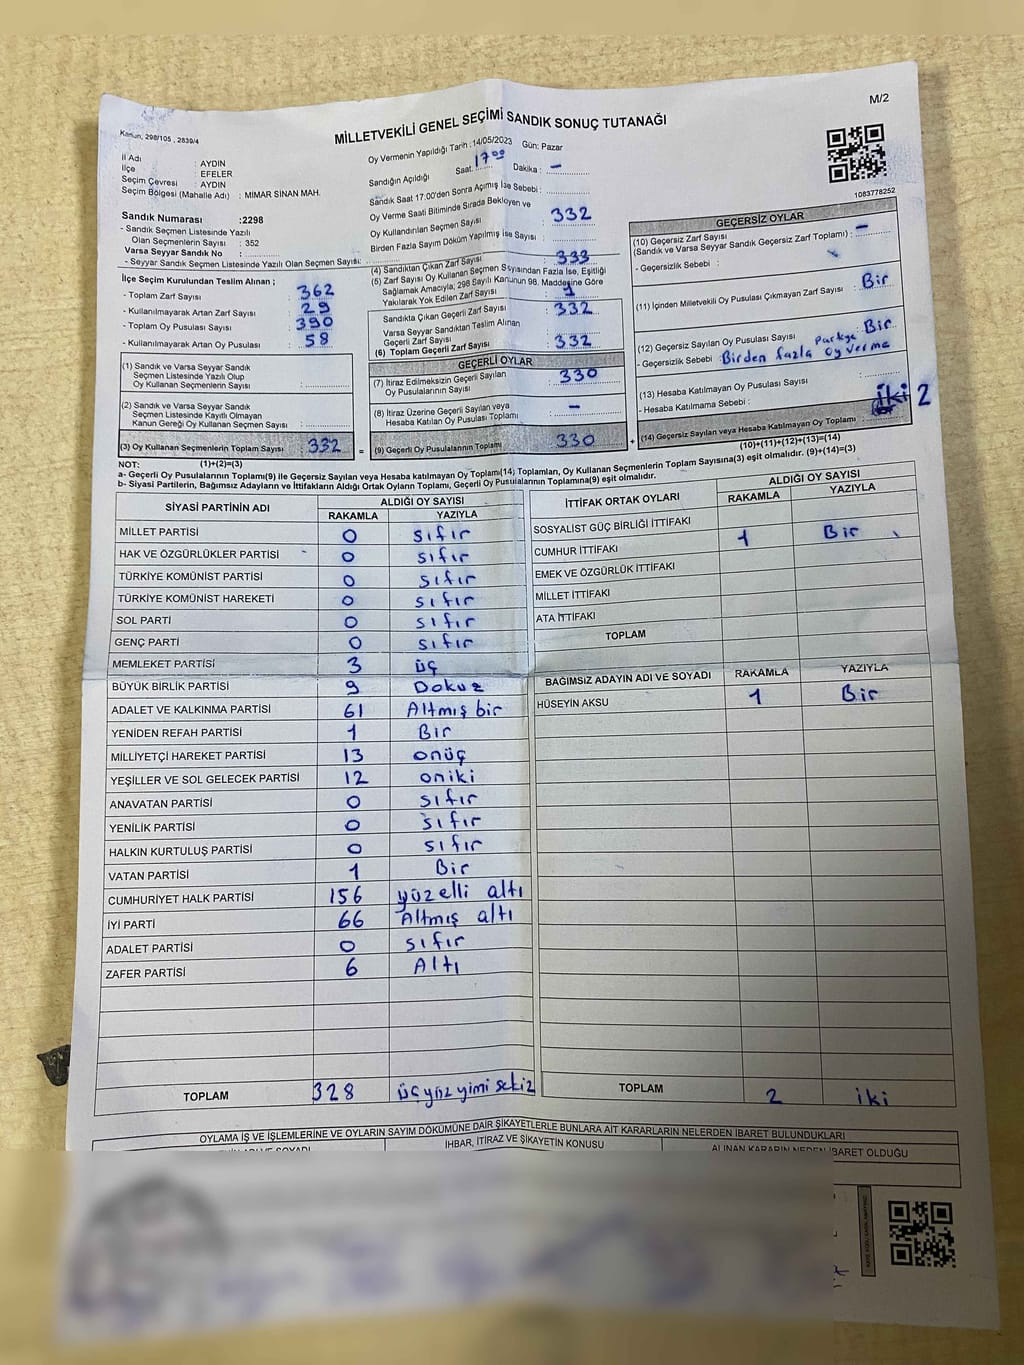 M/2
Kanun, 298/105 , 2839/4
MİLLETVEKİLİ GENEL SEÇİMİ SANDIK SONUÇ TUTANAĞI
1083778252
İl Adı : AYDIN
İlçe : EFELER
Seçim Çevresi : AYDIN
Seçim Bölgesi (Mahalle Adı) : MİMAR SİNAN MAH.
Sandık Numarası :2298
- Sandık Seçmen Listesinde Yazılı
Olan Seçmenlerin Sayısı : 352
Varsa Seyyar Sandık No :
- Seyyar Sandık Seçmen Listesinde Yazılı Olan Seçmen Sayısı:
Oy Vermenin Yapıldığı Tarih :14/05/2023 Gün: Pazar
Sandığın Açıldığı Saat: 17 00 Dakika : –
Sandık Saat 17:00'den Sonra Açımış İse Sebebi :
Oy Verme Saati Bitiminde Sırada Bekloyen ve
Oy Kullandırılan Seçmen Sayısı 332
Birden Fazla Sayım Döküm Yapılmış İse Sayısı :
İlçe Seçim Kurulundan Teslim Alınan ;
- Toplam Zarf Sayısı : 362
- Kullanılmayarak Artan Zarf Sayısı : 29
- Toplam Oy Pusulası Sayısı : 390
- Kullanılmayarak Artan Oy Pusulası : 58
(1) Sandık ve Varsa Seyyar Sandık
Seçmen Listesinde Yazılı Olup
Oy Kullanan Seçmenlerin Sayısı :
(2) Sandık ve Varsa Seyyar Sandık
Seçmen Listesinde Kayıtlı Olmayan
Kanun Gereği Oy Kullanan Seçmen Sayısı :
(3) Oy Kullanan Seçmenlerin Toplam Sayısı : 332
(4) Sandıktan Çıkan Zarf Sayısı : 333
(5) Zarf Sayısı Oy Kullanan Seçmen Sayısından Fazla İse, Eşitliği
Sağlamak Amacıyla; 298 Sayılı Kanunun 98. Maddesine Göre
Yakılarak Yok Edilen Zarf Sayısı : 1
Sandıkta Çıkan Geçerli Zarf Sayısı : 332
Varsa Seyyar Sandıktan Teslim Alınan
Geçerli Zarf Sayısı :
(6) Toplam Geçerli Zarf Sayısı : 332
GEÇERLİ OYLAR
(7) İtiraz Edilmeksizin Geçerli Sayılan
Oy Pusulalarının Sayısı : 330
(8) İtiraz Üzerine Geçerli Sayılan veya
Hesaba Katılan Oy Pusulası Toplamı : –
(9) Geçerli Oy Pusulalarının Toplamı : 330
GEÇERSİZ OYLAR
(10) Geçersiz Zarf Sayısı
(Sandık ve Varsa Seyyar Sandık Geçersiz Zarf Toplamı) : –
- Geçersizlik Sebebi :
(11) İçinden Milletvekili Oy Pusulası Çıkmayan Zarf Sayısı : Bir
(12) Geçersiz Sayılan Oy Pusulası Sayısı : Bir
- Geçersizlik Sebebi : Birden fazla partiye oy verme
(13) Hesaba Katılmayan Oy Pusulası Sayısı :
- Hesaba Katılmama Sebebi :
(14) Geçersiz Sayılan veya Hesaba Katılmayan Oy Toplamı : iki 2
(1)+(2)=(3)
(10)+(11)+(12)+(13)=(14)
NOT:
a- Geçerli Oy Pusulalarının Toplamı(9) ile Geçersiz Sayılan veya Hesaba katılmayan Oy Toplamı(14) Toplamları, Oy Kullanan Seçmenlerin Toplam Sayısına(3) eşit olmalıdır. (9)+(14)=(3)
b- Siyasi Partilerin, Bağımsız Adayların ve İttifakların Aldığı Ortak Oyların Toplamı, Geçerli Oy Pusulalarının Toplamına(9) eşit olmalıdır.
SİYASİ PARTİNİN ADI ALDIĞI OY SAYISI
RAKAMLA YAZIYLA
MİLLET PARTİSİ 0 sıfır
HAK VE ÖZGÜRLÜKLER PARTİSİ 0 sıfır
TÜRKİYE KOMÜNİST PARTİSİ 0 sıfır
TÜRKİYE KOMÜNİST HAREKETİ 0 sıfır
SOL PARTİ 0 sıfır
GENÇ PARTİ 0 sıfır
MEMLEKET PARTİSİ 3 üç
BÜYÜK BİRLİK PARTİSİ 9 Dokuz
ADALET VE KALKINMA PARTİSİ 61 Altmış bir
YENİDEN REFAH PARTİSİ 1 Bir
MİLLİYETÇİ HAREKET PARTİSİ 13 onüç
YEŞİLLER VE SOL GELECEK PARTİSİ 12 oniki
ANAVATAN PARTİSİ 0 sıfır
YENİLİK PARTİSİ 0 sıfır
HALKIN KURTULUŞ PARTİSİ 0 sıfır
VATAN PARTİSİ 1 Bir
CUMHURİYET HALK PARTİSİ 156 yüzelli altı
İYİ PARTİ 66 Altmış altı
ADALET PARTİSİ 0 sıfır
ZAFER PARTİSİ 6 Altı
TOPLAM 328 üçyüz yimi sekiz
İTTİFAK ORTAK OYLARI ALDIĞI OY SAYISI
RAKAMLA YAZIYLA
SOSYALİST GÜÇ BİRLİĞİ İTTİFAKI
CUMHUR İTTİFAKI 1 Bir
EMEK VE ÖZGÜRLÜK İTTİFAKI
MİLLET İTTİFAKI
ATA İTTİFAKI
TOPLAM
BAĞIMSIZ ADAYIN ADI VE SOYADI RAKAMLA YAZIYLA
HÜSEYİN AKSU 1 Bir
TOPLAM 2 iki
OYLAMA İŞ VE İŞLEMLERİNE VE OYLARIN SAYIM DÖKÜMÜNE DAİR ŞİKAYETLERLE BUNLARA AİT KARARLARIN NELERDEN İBARET BULUNDUKLARI
İHBAR, İTİRAZ VE ŞİKAYETİN KONUSU
ALINAN KARARIN NEDEN İBARET OLDUĞU